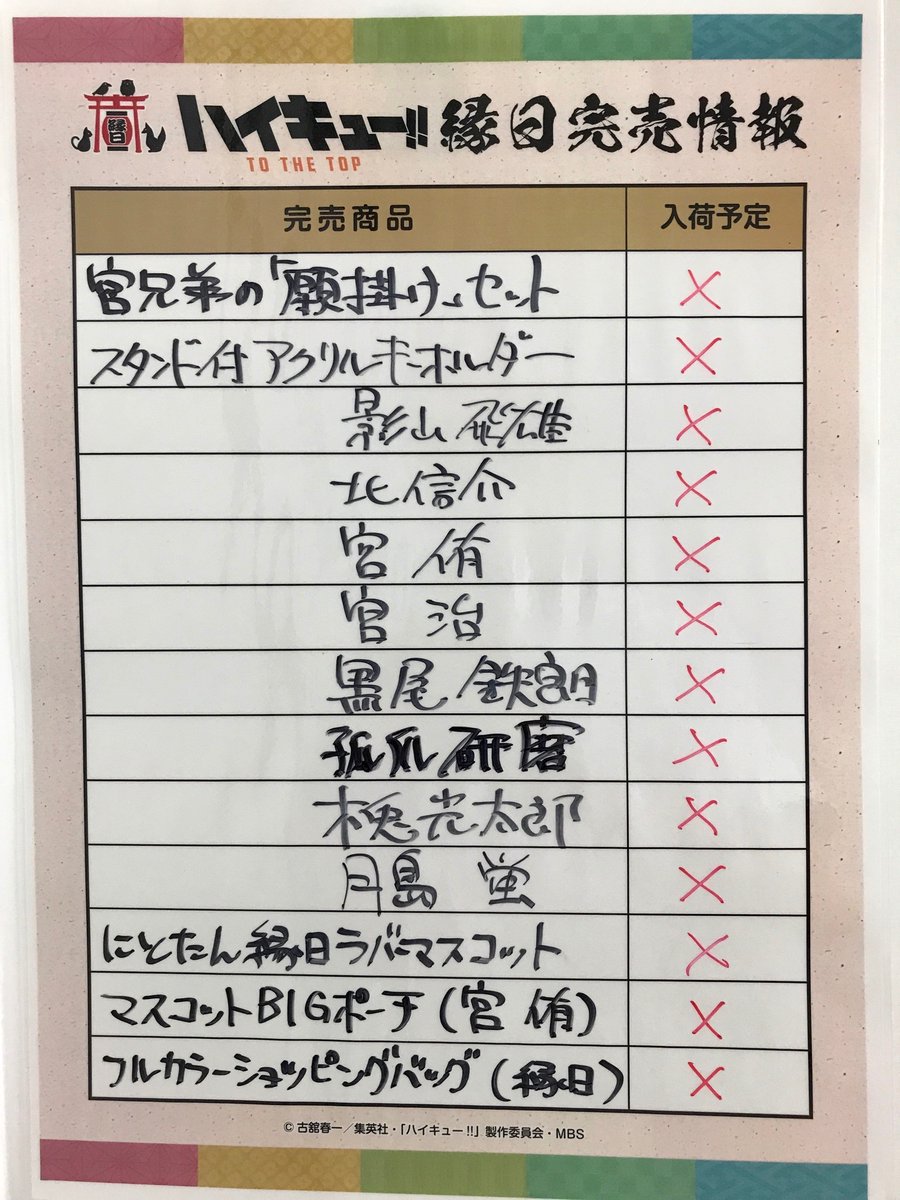 縁日 ハイキュー!! 縁日完売情報
TO THE TOP
完売商品 入荷予定
宮兄弟の「願掛け」セット ×
スタンド付アクリルキーホルダー ×
影山 飛雄 ×
北 信介 ×
宮 侑 ×
宮 治 ×
黒尾 鉄朗 ×
孤爪 研磨 ×
木兎光太郎 ×
月島 蛍 ×
にとたん縁日ラバーマスコット ×
マスコットBIGポーチ(宮 侑) ×
フルカラーショッピングバッグ(縁日) ×
© 古舘春一/集英社・「ハイキュー!!」製作委員会・MBS